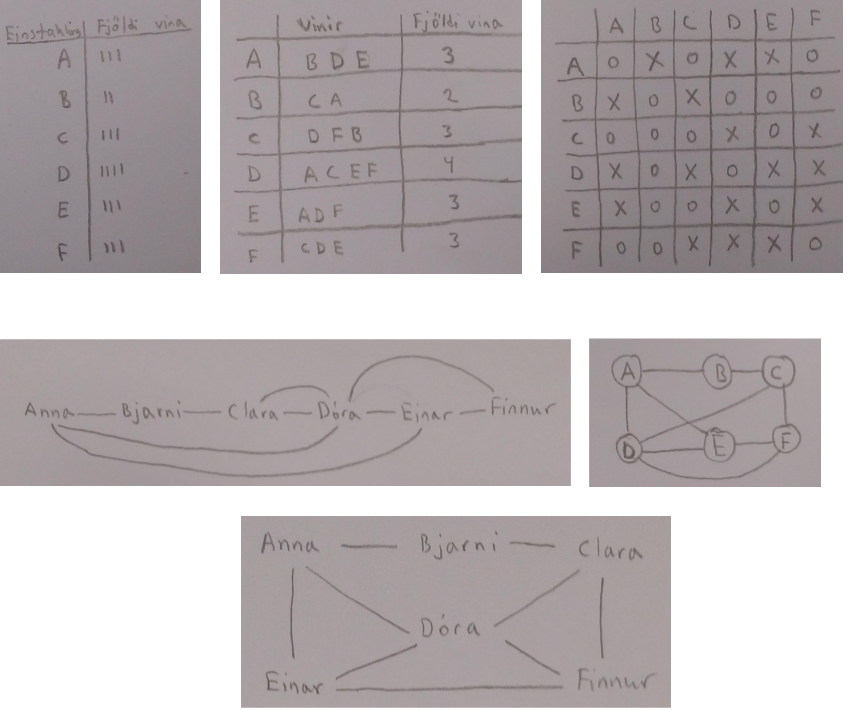 Einstakling Fjöldi vina
A III
B II
C III
D IIII
E III
F III
Vinir Fjöldi vina
A B D E 3
B C A 2
C D F B 3
D A C E F 4
E A D F 3
F C D E 3
A B C D E F
A O X O X X O
B X O X O O O
C O O O X O X
D X O X O X X
E X O O X O X
F O O X X X O
Anna Bjarni Clara Dóra Einar Finnur
A B C
D E F
Anna Bjarni Clara
Dóra
Einar Finnur